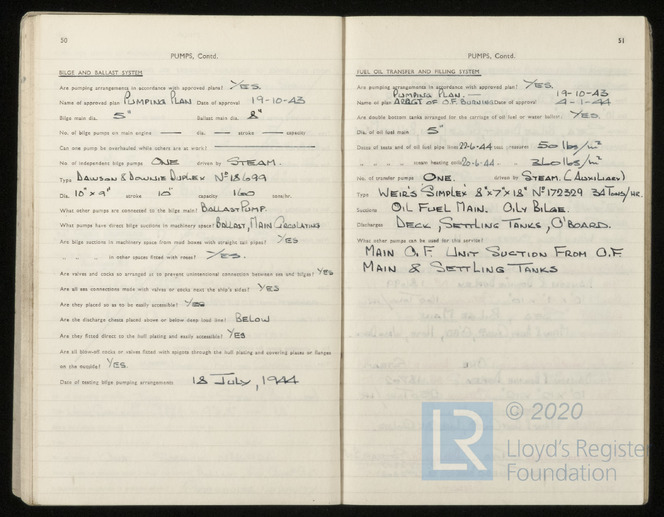 50
PUMPS, Contd.
BILGE AND BALLAST SYSTEM
Are pumping arrangements in accordance with approved plans? YES.
Name of approved plan PUMPING PLAN Date of approval 19-10-43
Bilge main dia. 5" Ballast main dia. 8"
No. of bilge pumps on main engine — dia. — stroke — capacity —
Can one pump be overhauled while others are at work? —
No. of independent bilge pumps ONE driven by STEAM.
Type DAWSON & DOWNIE DUPLEX Nº 18699
Dia. 10" x 9" stroke 10" capacity 160 tons/hr.
What other pumps are connected to the bilge main? BALLAST PUMP.
What pumps have direct suctions in machinery space? BALLAST, MAIN CIRCULATING
Are bilge suctions in machinery space from mud boxes with straight tail pipes? YES
" " " in other spaces fitted with roses? YES.
Are valves and cocks so arranged as to prevent unintentional connection between sea and bilges? YES
Are all sea connections made with valves or cocks next the ship's sides? YES
Are they placed so as to be easily accessible? YES
Are the discharge chests placed above or below deep load line? BELOW
Are they fitted direct to the hull plating and easily accessible? YES
Are all blow-off cocks or valves fitted with spigots through the hull plating and covering plates or flanges
on the outside? YES.
Date of testing bilge pumping arrangements 18 JULY, 1944
51
PUMPS, Contd.
FUEL OIL TRANSFER AND FILLING SYSTEM
Are pumping arrangements in accordance with approved plan? YES.
PUMPING PLAN. — 19-10-43
Name of plan ARRGT OF O.F. BURNING Date of approval 4-1-44
Are double bottom tanks arranged for the carriage of oil fuel or water ballast? YES.
Dia. of oil fuel main 5"
Dates of tests and of oil fuel pipe lines 22-6-44 test pressures 50 lbs/in²
" " " " steam heating coils 20-6-44 . " 360 lbs/in²
No. of transfer pumps ONE. driven by STEAM. (AUXILIARY)
Type WEIR'S 'SIMPLEX' 8" x 7" x 18" Nº 172329 34 TONS/HR.
Suctions OIL FUEL MAIN. OILY BILGE.
Discharges DECK, SETTLING TANKS, O'BOARD.
What other pumps can be used for this service?
MAIN O.F. UNIT SUCTION FROM O.F.
MAIN & SETTLING TANKS
LR
© 2020
Lloyd's Register
Foundation